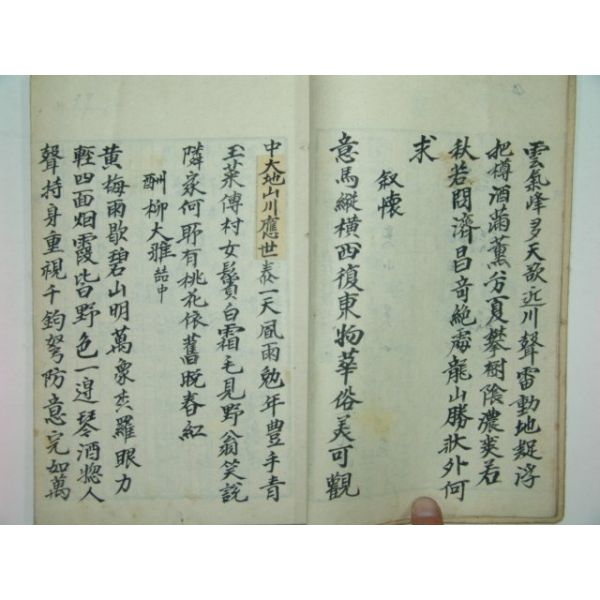 雲氣峰多天欲近川聲雷動地疑浮
把樽酒滿薰芳夏攀樹陰濃爽若
秋若問濟昌奇絶處龍山勝狀外何
求
叙懷
意馬縱橫西復東物華俗美可觀
中大地山川應世泰一天風雨勉年豊手青
玉菜傳村女鬢白霜毛見野翁笑說
隣家何野有桃花依舊晩春紅
酬柳大雅喆中
黃梅雨歇碧山明萬象森羅眼力
輕四面烟霞皆野色一邊琴酒惣人
聲持身重視千鈞弩防意完如萬